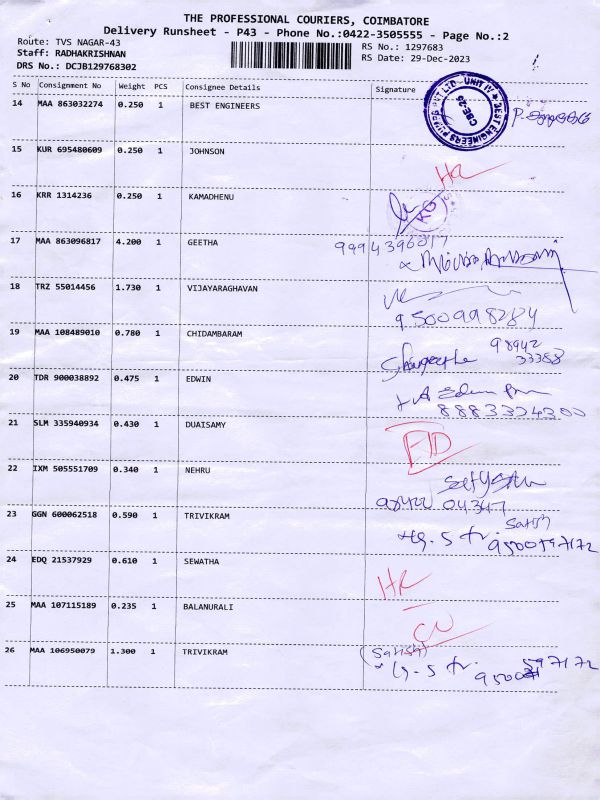 THE PROFESSIONAL COURIERS, COIMBATORE
Delivery Runsheet - P43 - Phone No.:0422-3505555 - Page No.:2
Route: TVS NAGAR-43
RS No.: 1297683
Staff: RADHAKRISHNAN
RS Date: 29-Dec-2023
DRS No.: DCJB129768302
S No Consignment No Weight PCS Consignee Details Signature
14 MAA 863032274 0.250 1 BEST ENGINEERS
BEST ENGINEERS PUMPS PVT LTD - UNIT IV
CBE-25
15 KUR 695480609 0.250 1 JOHNSON
16 KRR 1314236 0.250 1 KAMADHENU
17 MAA 863096817 4.200 1 GEETHA
18 TRZ 55014456 1.730 1 VIJAYARAGHAVAN
9500998284
19 MAA 108489010 0.780 1 CHIDAMBARAM
98942
33388
20 TDR 900038892 0.475 1 EDWIN
21 SLM 335940934 0.430 1 DUAISAMY
22 IXM 505551709 0.340 1 NEHRU
04347
23 GGN 600062518 0.590 1 TRIVIKRAM
Satish
9500597172
24 EDQ 21537929 0.610 1 SEWATHA
25 MAA 107115189 0.235 1 BALANURALI
26 MAA 106950079 1.300 1 TRIVIKRAM
(Satish)